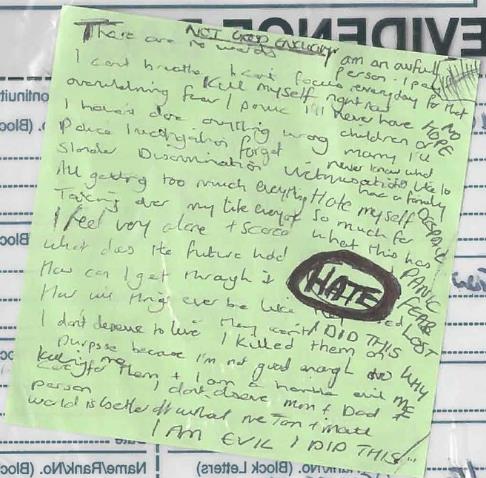 EVIDENCE
NOT GOOD ENOUGH
There are no words
I am an awful person - I pay every day for that
I can't breathe I can't focus
Kill myself right now
overwhelming fear / panic I'll never have
NO HOPE
I haven't done anything wrong
children or marry I'll never know what
Police investigation forget
Slander Discrimination Victimisation
like to have a family
All getting too much everything
Hate myself
DESPAIR
Taking over my life everyone
so much for what this has
I feel very alone + scared
PANIC
FEAR
LOST
What does the future hold
How can I get through it
HATE
How will things ever be like
I DID THIS
WHY ME
I don't deserve to live
I killed them on
purpose because I'm not good enough to
care for them + I am a horrible evil
person
killing me
I don't deserve mum + Dad +
world is better off without me
I AM EVIL I DID THIS
Name/Rank/No. (Block
Rank/No. (Block Letters)